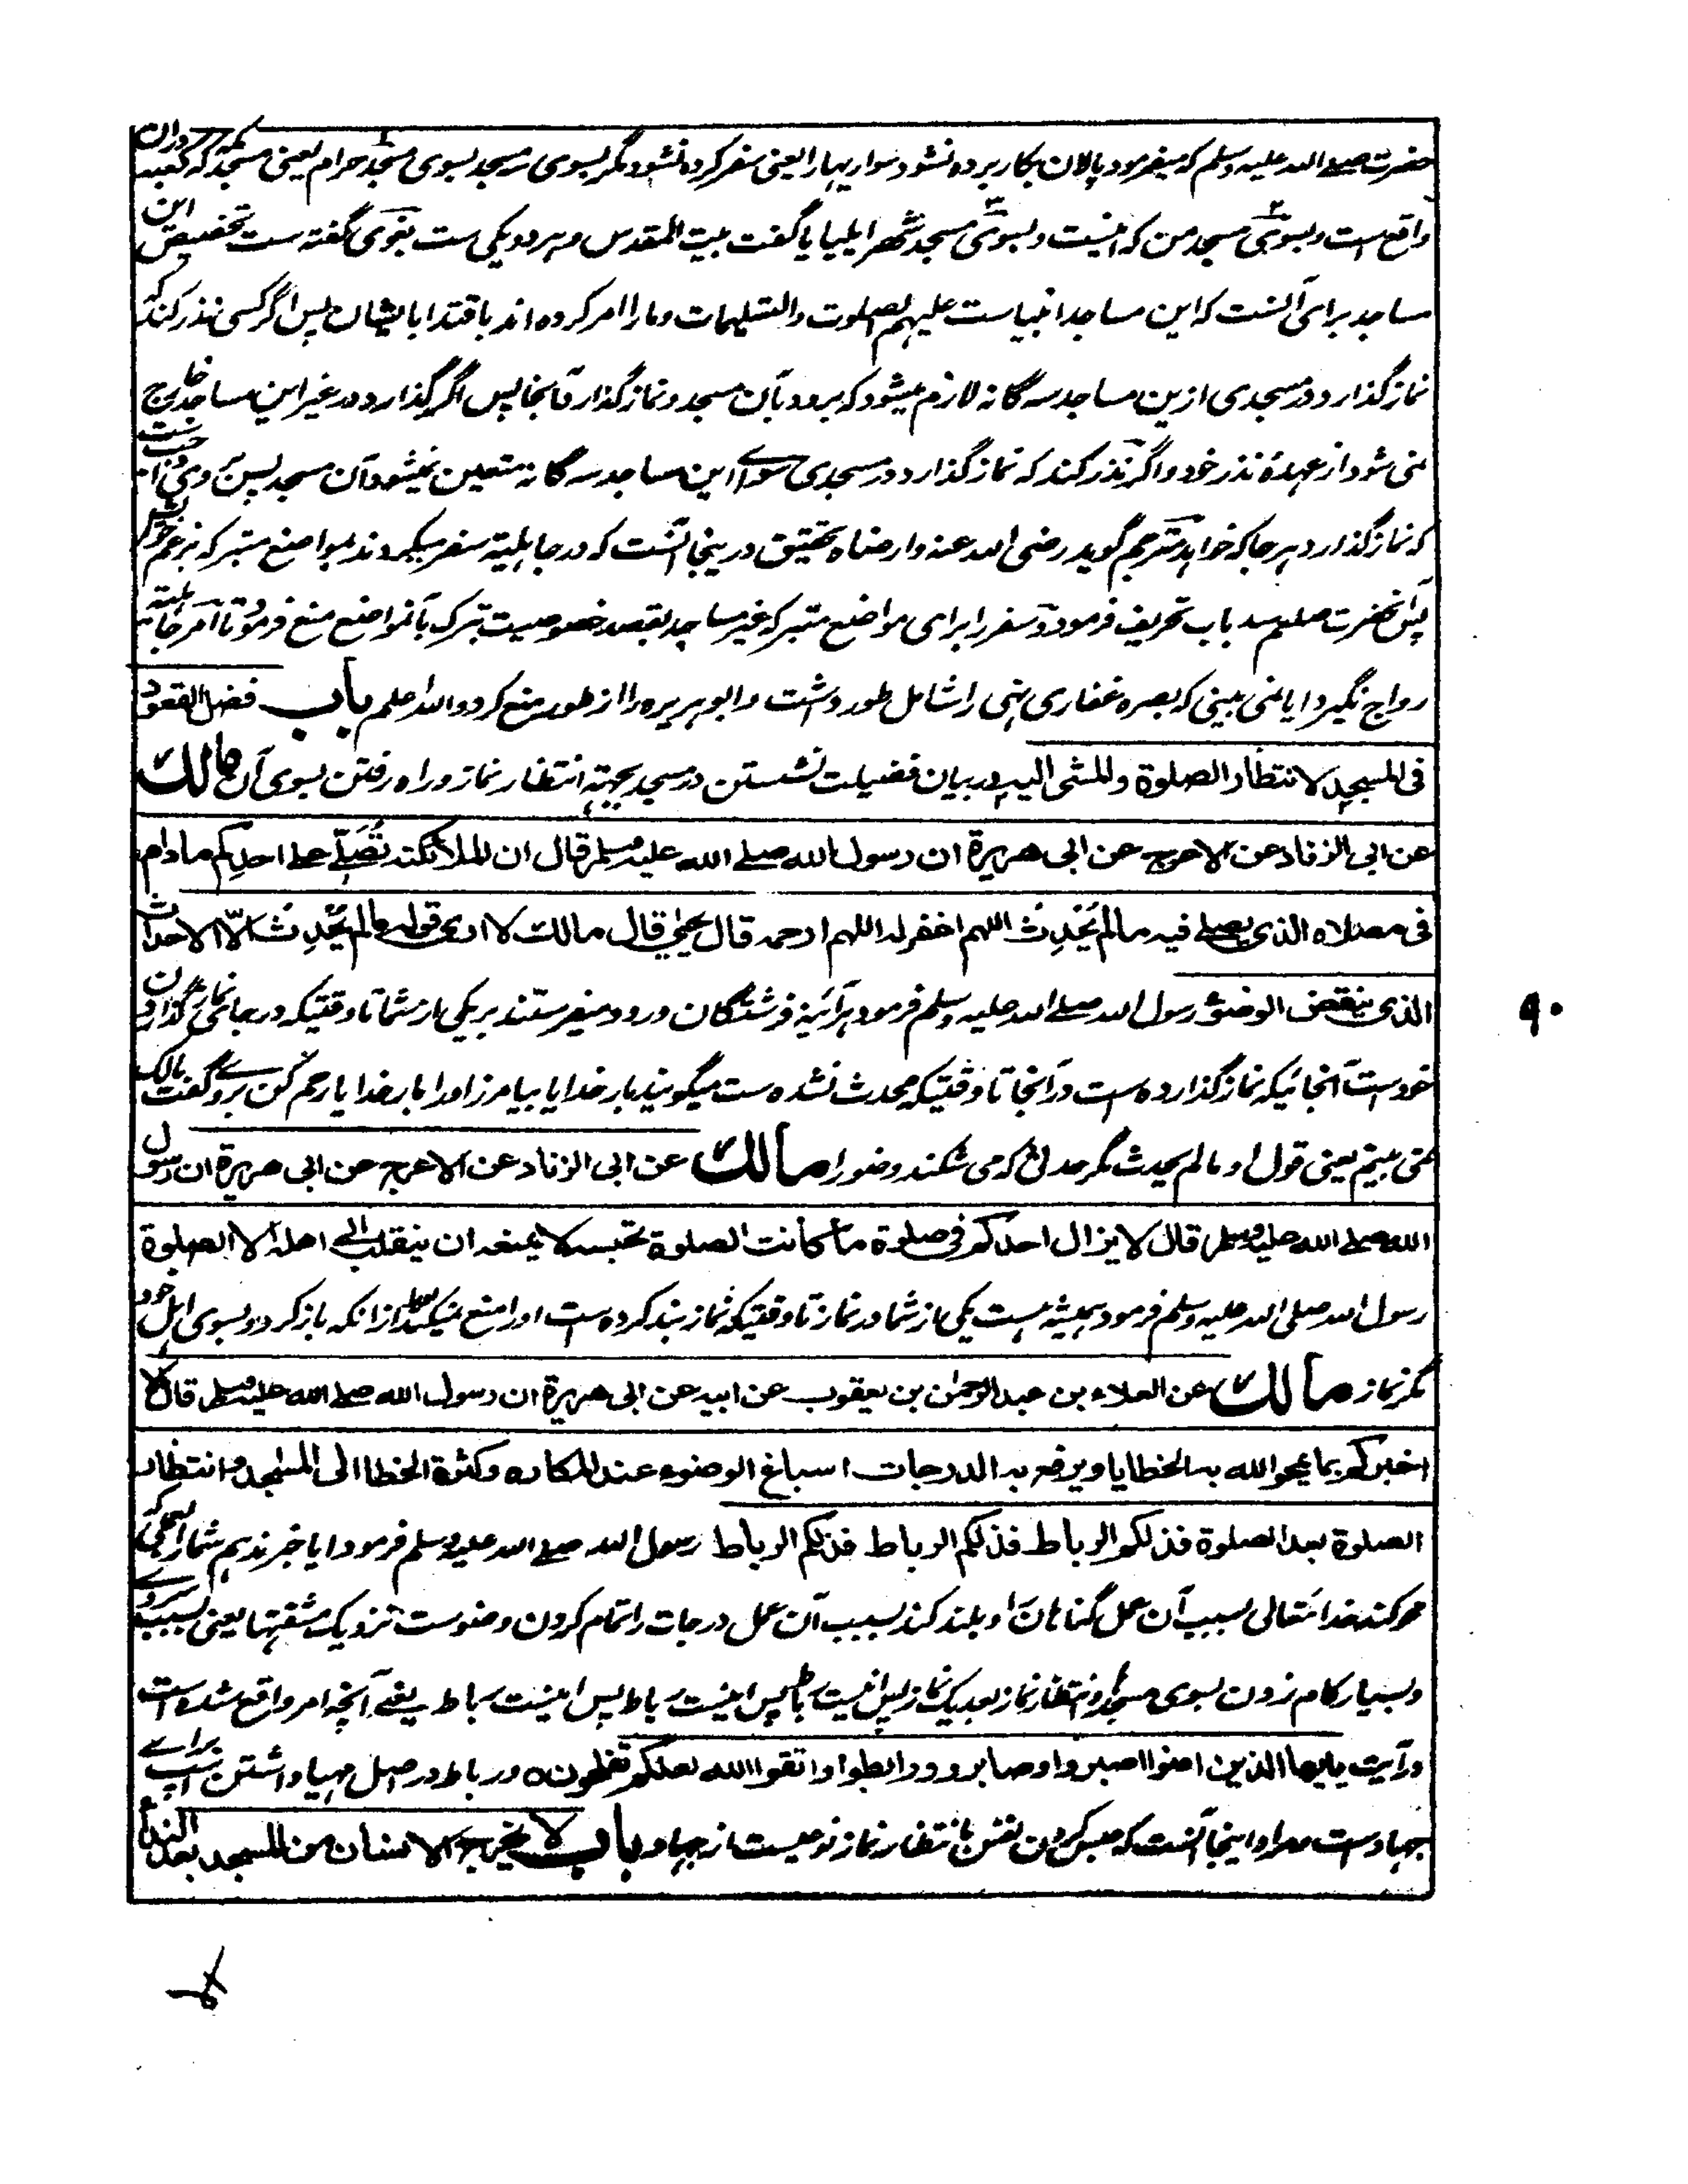 حضرت صلے الله علیه وسلم که میفرمود پالان بکار برده نشود سواریها را یعنی سفر کرده نشود مگر بسوی سه مسجد بسوی مسجد حرام یعنی مسجدیکه کعبه دران
واقع است و بسوی مسجد من که اینست و بسوی مسجد شهر ایلیا یا گفت بیت المقدس و هر دو یکی ست بغوی گفته ست تخصیص این
مساجد برای آنست که این مساجد انبیاست علیهم الصلوت والتسلیمات و ما را امر کرده اند باقتدا بایشان پس اگر کسی نذر کند که
نماز گذارد در مسجدی ازین مساجد سه گانه لازم میشود که برود بآن مسجد و نماز گذارد آنجا پس اگر گذارد در غیر این مساجد خارج
نمی شود از عهدهٔ نذر خود و اگر نذر کند که نماز گذارد در مسجدی سواے این مساجد سه گانه متعین نمیشود آن مسجد پس وی
که نماز گذارد هر جا که خواهد مترجم گوید رضی الله عنه وارضاه تحقیق درینجا آنست که در جاهلیة سفر میکردند بمواضع متبرکه بزعم خویش
پس آنحضرت صلعم سد باب تحریف فرمود و سفر را برای مواضع متبرکه غیر مساجد بقصد خصوصیت تبرک بآنمواضع منع فرمود تا امر جاهلیته
رواج نگیرد ایا نمی بینی که بصره غفاری نهی را شامل طور داشت و ابو هریره را از طور منع کرد والله اعلم باب فضل القعود
فی المسجد لانتظار الصلوة والمشی الیه در بیان فضیلت نشستن در مسجد بجهته انتظار نماز و راه رفتن بسوی آن مالك
عن ابی الزناد عن الاعرج عن ابی هریرة ان رسول الله صلے الله علیه وسلم قال ان الملائکة تُصَلّی علے احدکم مادام
فی مصلاه الذی یصلے فیه مالم یُحْدِث اللهم اغفر له اللهم ارحمه قال یحیٰی قال مالك لا اری قوله مالم یُحْدِث الّا الاحداث
الذی ینقض الوضوٗ رسول الله صلے الله علیه وسلم فرمود هرآئینه فرشتگان درود میفرستند بر یکی از شما تا وقتیکه در جای نماز گذاردن
خودست آنجائیکه نماز گذارده است در آنجا تا وقتیکه محدث نشده ست میگویند بار خدایا بیامرز او را بار خدایا رحم کن بروے گفت مالک
نمی بینم یعنی قول او مالم یحدث مگر حدثی که می شکند وضو را مالك عن ابی الزناد عن الاعرج عن ابی هریرة ان رسول
الله صلے الله علیه وسلم قال لا یزال احدکم فی صلوة ما کانت الصلوة تحبسه لا یمنعه ان ینقلب الی اهله الا الصلوة
رسول الله صلی الله علیه وسلم فرمود همیشه هست یکی از شما در نماز تا وقتیکه نماز بند کرده است او را منع نمیکند از انکه باز گردد بسوی اهل خود
مگر نماز مالك عن العلاء بن عبد الرحمٰن بن یعقوب عن ابیه عن ابی هریرة ان رسول الله صلے الله علیه وسلم قال الا
اخبرکم بما یمحو الله به الخطایا ویرفع به الدرجات اسباغ الوضوء عند المکاره وکثرة الخطا الی المساجد وانتظار
الصلوة بعد الصلوة فذلکم الرباط فذلکم الرباط فذلکم الرباط رسول الله صلے الله علیه وسلم فرمود ایا خبر ندهم شما را بعملی که
محو کند خدا تعالی بسبب آن عمل گناهان را و بلند کند بسبب آن عمل درجات را تمام کردن وضوست نزدیک مشقتها یعنی بسبب سردے
و بسیار گام زدن بسوی مسجد و انتظار نماز بعد یک نماز پس اینست رباط پس اینست رباط پس اینست رباط یعنے آنچه امر واقع شده است
در آیت یایها الذین امنوا اصبروا وصابروا ورابطوا واتقوا الله لعلکم تفلحون ه و رباط در اصل مهیا داشتن اسپ براے
جهادست مراد اینجا آنست که حبس کردن نفس بانتظار نماز نوعیست از جهاد باب لا یخرج الانسان من المسجد بعد الندآء
۹۰